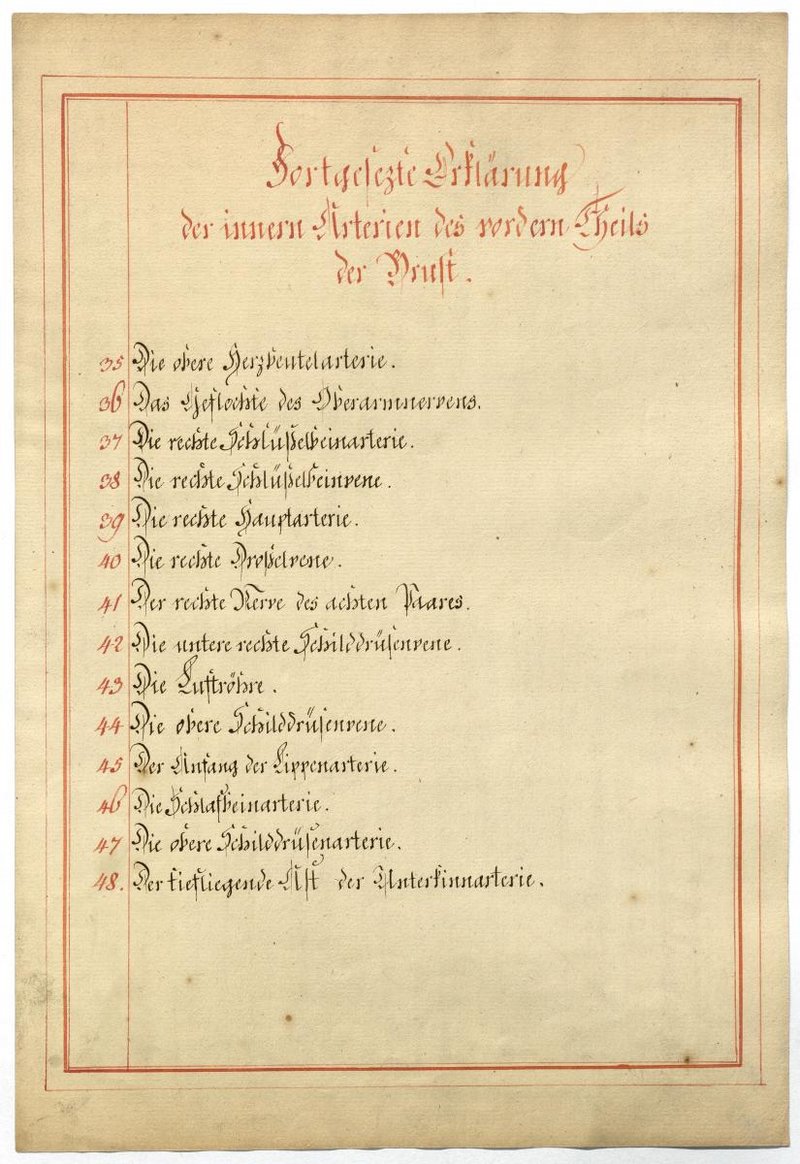 Fortgesezte Erklärung
der innern Arterien des vordern Theils
der Brust.
35 Die obere Herzbeutelarterie.
36 Das Geflechte des Oberarmnervens.
37 Die rechte Schlüßelbeinarterie.
38 Die rechte Schlüßelbeinvene.
39 Die rechte Hauptarterie.
40 Die rechte Droßelvene.
41 Der rechte Nerve des achten Paares.
42 Die untere rechte Schilddrüsenvene.
43 Die Luftröhre.
44 Die obere Schilddrüsenvene.
45 Der Anfang der Lippenarterie.
46 Die Schlafbeinarterie.
47 Die obere Schilddrüsenarterie.
48. Der tiefliegende Ast der Unterkinnarterie.